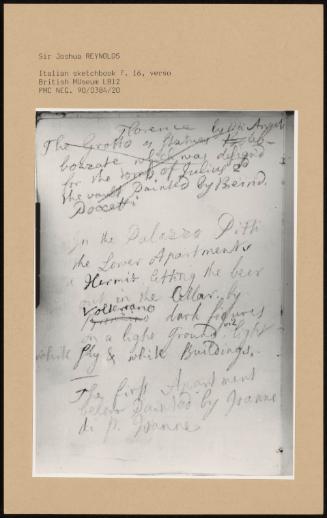 Sir Joshua REYNOLDS
Italian sketchbook f. 16, verso
British Museum LB12
PMC NEG. 90/0384/20
Florence by M: Angel
The Grotto of Statues
bozzate which was design'd
for the tomb of Julius 2d
the vault Painted by Bernd.
Poccetti
In the Palazzo Pitti
the Lower Apartments
a Hermit letting the beer
out in the Cellar by
Volterano dark figures
on a light ground viz light
white sky & white Buildings.
The first Apartment
below painted by Joanne
di S. Joanne